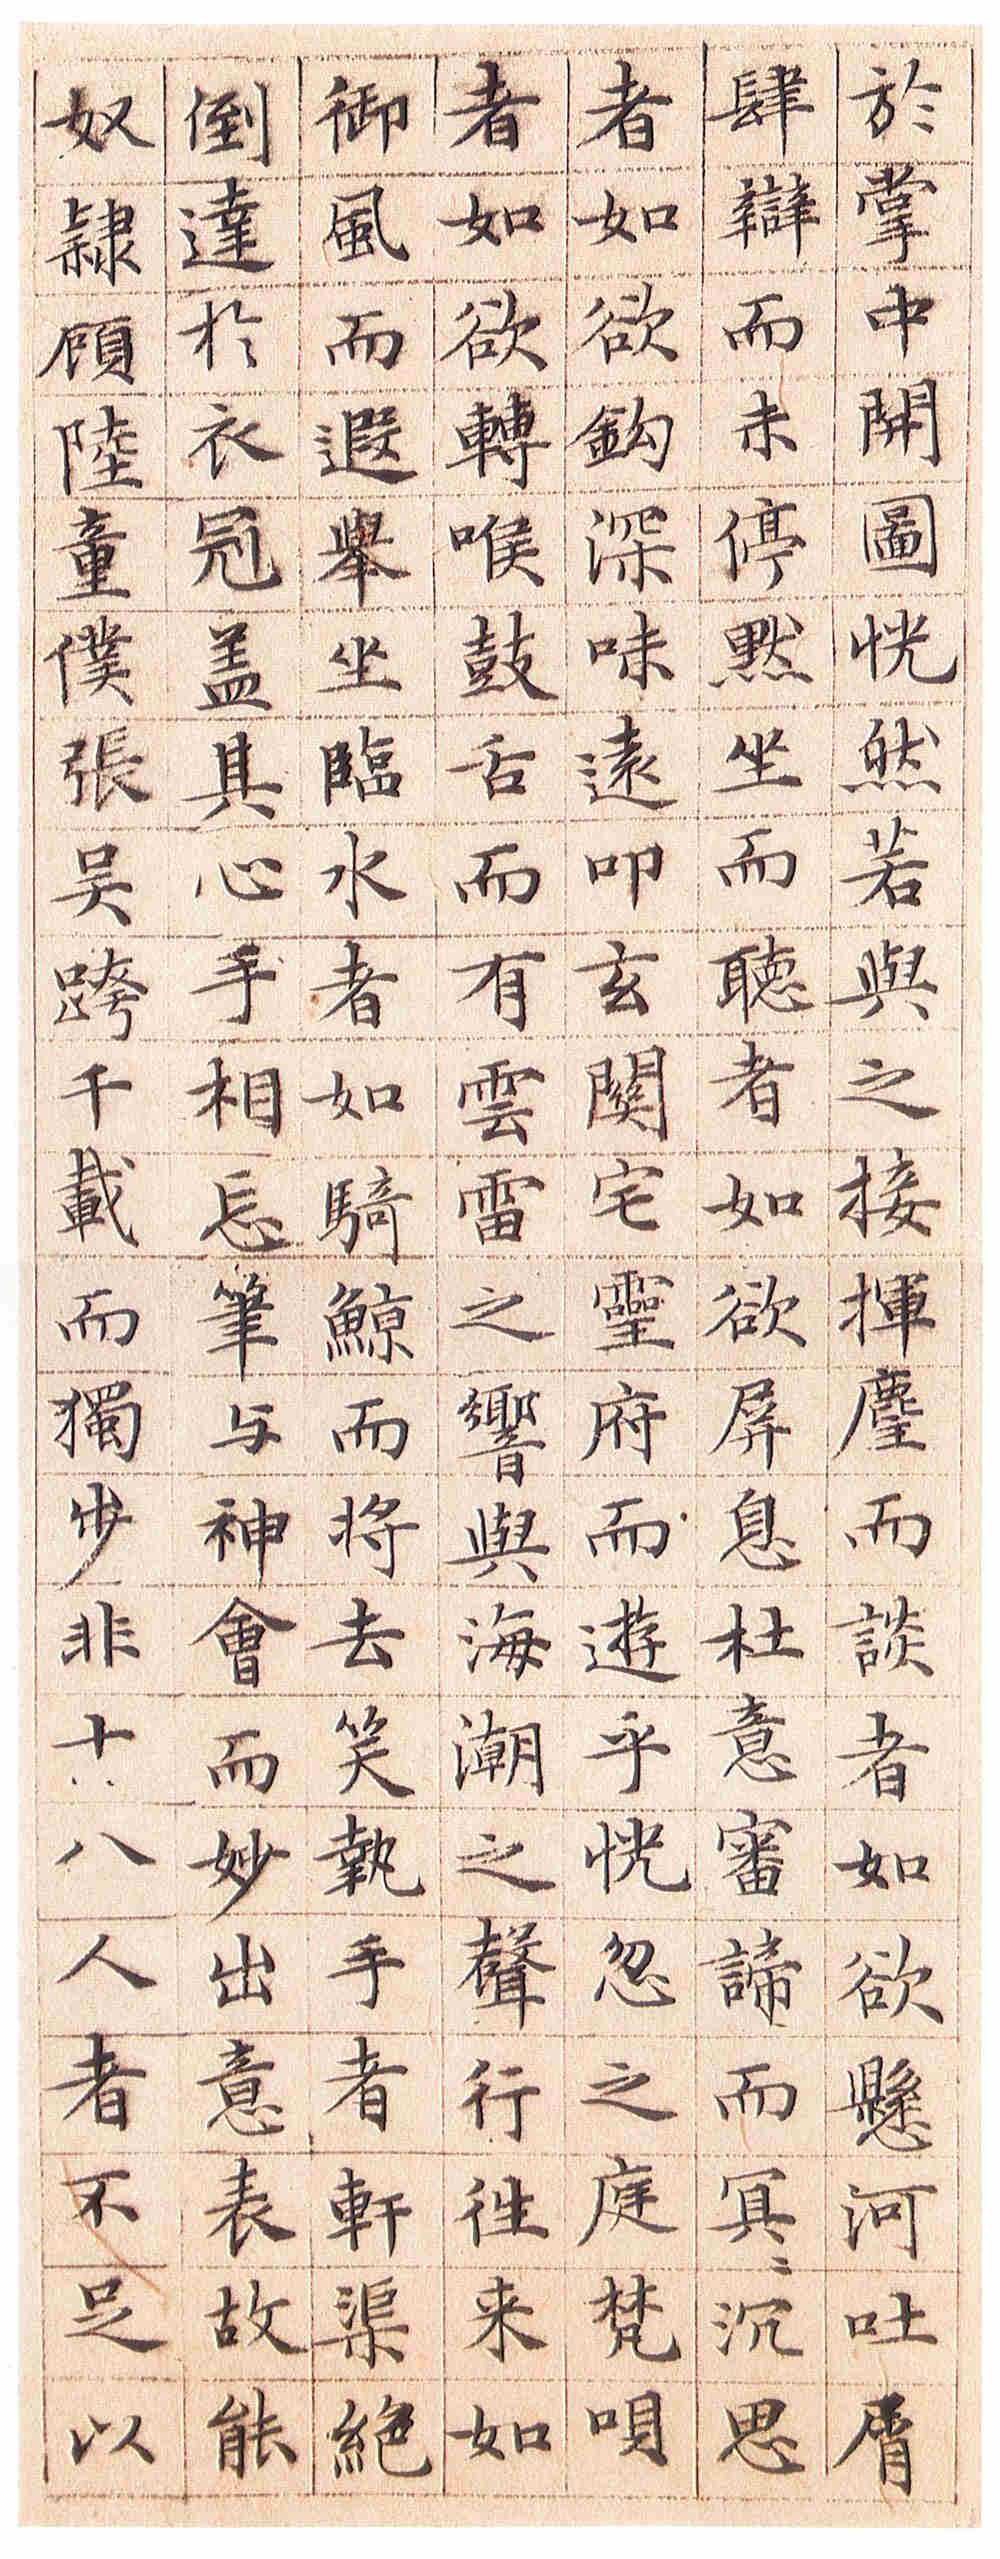 於掌中開圖恍然若與之接揮麈而談者如欲懸河吐屑
肆辯而未停默坐而聽者如欲屏息杜意審諦而冥〻沉思
者如欲鈎深味遠叩玄關宅靈府而遊乎恍忽之庭梵唄
者如欲轉喉鼓舌而有雲雷之響與海潮之聲行徃来如
御風而遐舉坐臨水者如騎鯨而将去笑執手者軒渠絶
倒達於衣冠盖其心手相忘筆与神會而妙出意表故能
奴隷顧陸童僕張吴跨千載而獨步非十八人者不足以